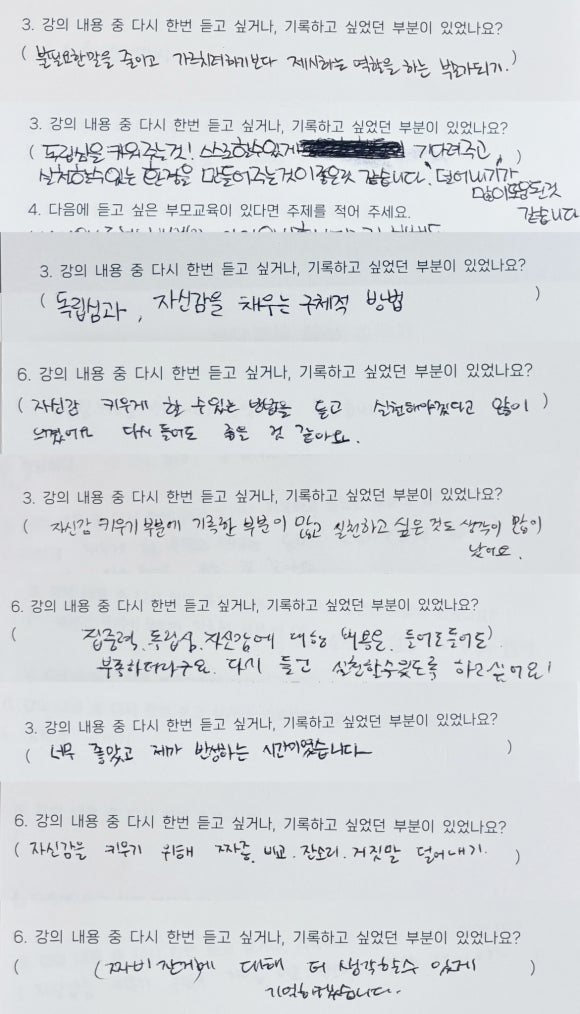 3. 강의 내용 중 다시 한번 듣고 싶거나, 기록하고 싶었던 부분이 있었나요?
( 불필요한말을 줄이고 가르치려하기보다 제시하는 역할을 하는 부모가되기. )
3. 강의 내용 중 다시 한번 듣고 싶거나, 기록하고 싶었던 부분이 있었나요?
( 독립심을 키워주는것! 스스로할수있게 기다려주고, )
실천할수있는 환경을 만들어주는것이좋은것 같습니다. 덜어내기가
많이 된것
같습니다
4. 다음에 듣고 싶은 부모교육이 있다면 주제를 적어 주세요.
3. 강의 내용 중 다시 한번 듣고 싶거나, 기록하고 싶었던 부분이 있었나요?
( 독립심과, 자신감을 채우는 구체적 방법 )
6. 강의 내용 중 다시 한번 듣고 싶거나, 기록하고 싶었던 부분이 있었나요?
( 자신감 키우게 할 수있는 방법을 듣고 실천해야겠다고 많이 )
느꼈어요 다시 들어도 좋을 것 같아요.
3. 강의 내용 중 다시 한번 듣고 싶거나, 기록하고 싶었던 부분이 있었나요?
( 자신감 키우기 부분에 기록한 부분이 많고 실천하고 싶은 것도 생각이 많이
났어요.
6. 강의 내용 중 다시 한번 듣고 싶거나, 기록하고 싶었던 부분이 있었나요?
( 집중력. 독립심. 자신감에 대한 내용은 들어도들어도 )
부족하더라구요. 다시 듣고 실천할수있도록 하고싶어요!
3. 강의 내용 중 다시 한번 듣고 싶거나, 기록하고 싶었던 부분이 있었나요?
( 너무 좋았고 제가 반성하는 시간이었습니다 )
6. 강의 내용 중 다시 한번 듣고 싶거나, 기록하고 싶었던 부분이 있었나요?
( 자신감을 키우기 위해 짜증. 비교. 잔소리. 거짓말 덜어내기. )
6. 강의 내용 중 다시 한번 듣고 싶거나, 기록하고 싶었던 부분이 있었나요?
( (짜비잔거)에 대해 더 생각할수 있게 )
기억하겠습니다.